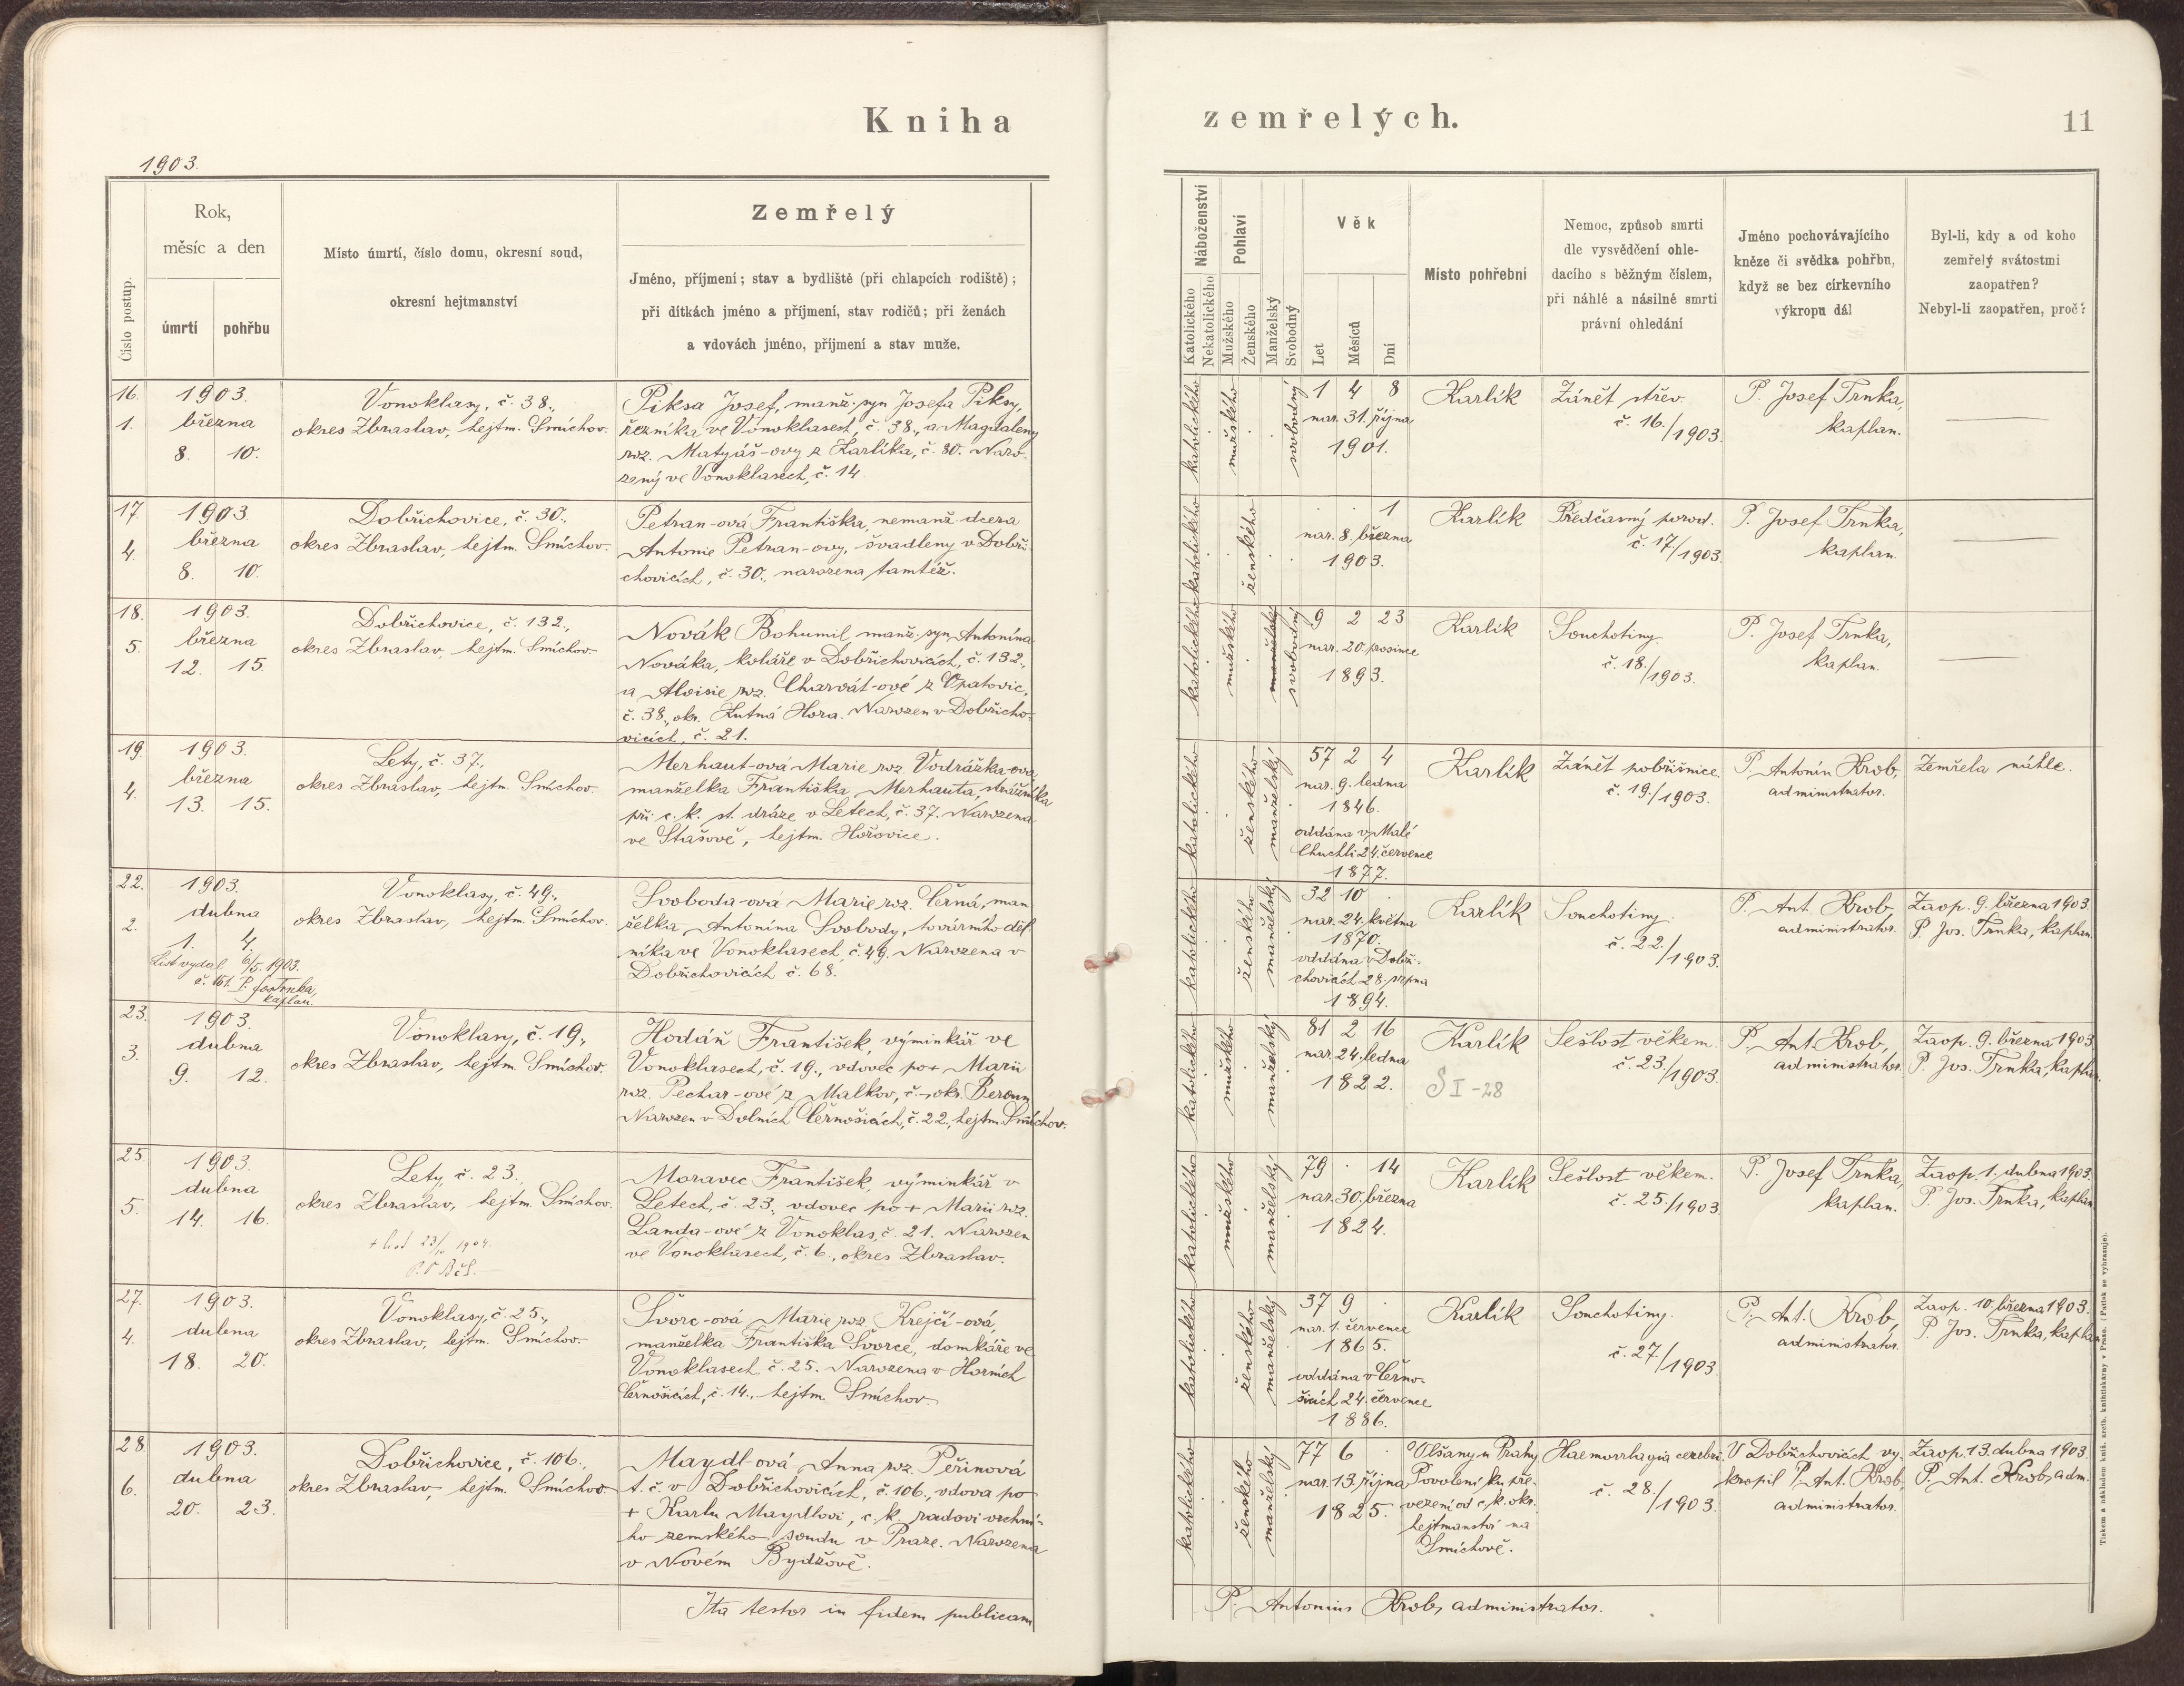 Kniha
zemřelých.
11
1903.
Číslo postup.
Rok,
měsíc a den
úmrtí
pohřbu
Místo úmrtí, číslo domu, okresní soud,
okresní hejtmanství
Zemřelý
Jméno, příjmení; stav a bydliště (při chlapcích rodiště);
při dítkách jméno a příjmení, stav rodičů; při ženách
a vdovách jméno, příjmení a stav muže.
Náboženství
Katolického
Nekatolického
Pohlaví
Mužského
Ženského
Manželský
Svobodný
Věk
Let
Měsíců
Dní
Místo pohřební
Nemoc, způsob smrti
dle vysvědčení ohle-
dacího s běžným číslem,
při náhlé a násilné smrti
právní ohledání
Jméno pochovávajícího
kněze či svědka pohřbu,
když se bez církevního
výkropu dál
Byl-li, kdy a od koho
zemřelý svátostmi
zaopatřen?
Nebyl-li zaopatřen, proč?
16.
1.
1903.
března
8. 10.
Vonoklasy, č. 38.,
okres Zbraslav, hejtm. Smíchov.
Piksa Josef, manž. syn Josefa Piksy,
řezníka ve Vonoklasech, č. 38., a Magdaleny
roz. Matyáš-ovy z Karlíka, č. 80. Naro-
zený ve Vonoklasech, č. 14.
katolického
mužského
svobodný
1 4 8
nar. 31. října
1901.
Karlík
Zánět střev.
č. 16./1903.
P. Josef Trnka,
kaplan.
17.
4.
1903.
března
8. 10.
Dobřichovice, č. 30.,
okres Zbraslav, hejtm. Smíchov.
Petran-ová Františka, nemanž. dcera
Antonie Petran-ovy, švadleny v Dobři-
chovicích, č. 30., narozena tamtéž.
katolického
ženského
1
nar. 8. března
1903.
Karlík
Předčasný porod.
č. 17./1903.
P. Josef Trnka,
kaplan.
18.
5.
1903.
března
12. 15.
Dobřichovice, č. 132.,
okres Zbraslav, hejtm. Smíchov.
Novák Bohumil, manž. syn Antonína
Nováka, koláře v Dobřichovicích, č. 132.,
a Aloisie roz. Charvát-ové z Opatovic,
č. 38., okr. Kutná Hora. Narozen v Dobřicho-
vicích, č. 21.
katolického
mužského
manželský
svobodný
9 2 23
nar. 20. prosince
1893.
Karlík
Souchotiny.
č. 18./1903.
P. Josef Trnka,
kaplan.
19.
4.
1903.
března
13. 15.
Lety, č. 37.,
okres Zbraslav, hejtm. Smíchov.
Merhaut-ová Marie roz. Vodrážka-ova,
manželka Františka Merhauta, strážníka
při c. k. st. dráze v Letech, č. 37. Narozena
ve Stašově, hejtm. Hořovice.
katolického
ženského
manželský
57 2 4
nar. 9. ledna
1846.
oddána v Malé
Chuchli 24. července
1877.
Karlík
Zánět pobřišnice.
č. 19./1903.
P. Antonín Krob,
administrator.
Zemřela náhle.
22.
2.
1903.
dubna
1. 4.
List vydal 6/5. 1903.
č. 151. P. Jos Trnka,
kaplan.
Vonoklasy, č. 49.,
okres Zbraslav, hejtm. Smíchov.
Svoboda-ová Marie roz. Černá, man-
želka Antonína Svobody, továrního děl-
níka ve Vonoklasech, č. 49. Narozena v
Dobřichovicích č. 68.
katolického
ženského
manželský
32 10
nar. 24. května
1870.
oddána v Dobři-
chovicích 28. srpna
1894.
Karlík
Souchotiny.
č. 22./1903.
P. Ant. Krob
administrator.
Zaop. 9. března 1903.
P. Jos. Trnka, kaplan.
23.
3.
1903.
dubna
9. 12.
Vonoklasy, č. 19.,
okres Zbraslav, hejtm. Smíchov.
Hodáň František, výminkář ve
Vonoklasech, č. 19., vdovec po + Marii
roz. Pechar-ové z Malkov, č. -, okr. Beroun.
Narozen v Dolních Černošicích, č. 22., hejtm. Smíchov.
katolického
mužského
manželský
81 2 16
nar. 24. ledna
1822.
Karlík
S I-28
Sešlost věkem.
č. 23./1903.
P. Ant. Krob,
administrator.
Zaop. 9. března 1903
P. Jos. Trnka, kaplan.
25.
5.
1903.
dubna
14. 16.
Lety, č. 23.,
okres Zbraslav, hejtm. Smíchov.
+ list 23/10 1904.
Moravec František, výminkář v
Letech, č. 23., vdovec po + Marii roz.
Landa-ové z Vonoklas, č. 21. Narozen
ve Vonoklasech, č. 6., okres Zbraslav.
katolického
mužského
manželský
79 14
nar. 30. března
1824.
Karlík
Sešlost věkem.
č. 25/1903.
P. Josef Trnka,
kaplan.
Zaop. 1. dubna 1903.
P. Jos. Trnka, kaplan.
27.
4.
1903.
dubna
18. 20.
Vonoklasy, č. 25.,
okres Zbraslav, hejtm. Smíchov.
Švorc-ová Marie roz. Krejčí-ová,
manželka Františka Švorce, domkáře ve
Vonoklasech č. 25. Narozena v Horních
Černošicích, č. 14., hejtm. Smíchov.
katolického
ženského
manželský
37 9
nar. 1. července
1865.
oddána v Černo-
šicích 24. července
1886.
Karlík
Souchotiny.
č. 27./1903
P. Ant. Krob,
administrator.
Zaop. 10. března 1903.
P. Jos. Trnka, kaplan.
28.
6.
1903.
dubna
20. 23.
Dobřichovice, č. 106.,
okres Zbraslav, hejtm. Smíchov.
Maydl-ová Anna roz. Peřinová
t. č. v Dobřichovicích, č. 106., vdova po
+ Karlu Maydlovi, c. k. radovi vrchní-
ho zemského soudu v Praze. Narozena
v Novém Bydžově.
katolického
ženského
manželský
77 6
nar. 13. října
1825.
Olšany u Prahy
Povolení ku pře-
vezení od c. k. okr.
hejtmanství na
Smíchově.
Haemorrhagia cerebri.
č. 28./1903.
V Dobřichovicích vy-
kropil P. Ant. Krob,
administrator.
Zaop. 13. dubna 1903.
P. Ant. Krob, adm.
Ita testor in fidem publicam
P. Antonius Krob, administrator.